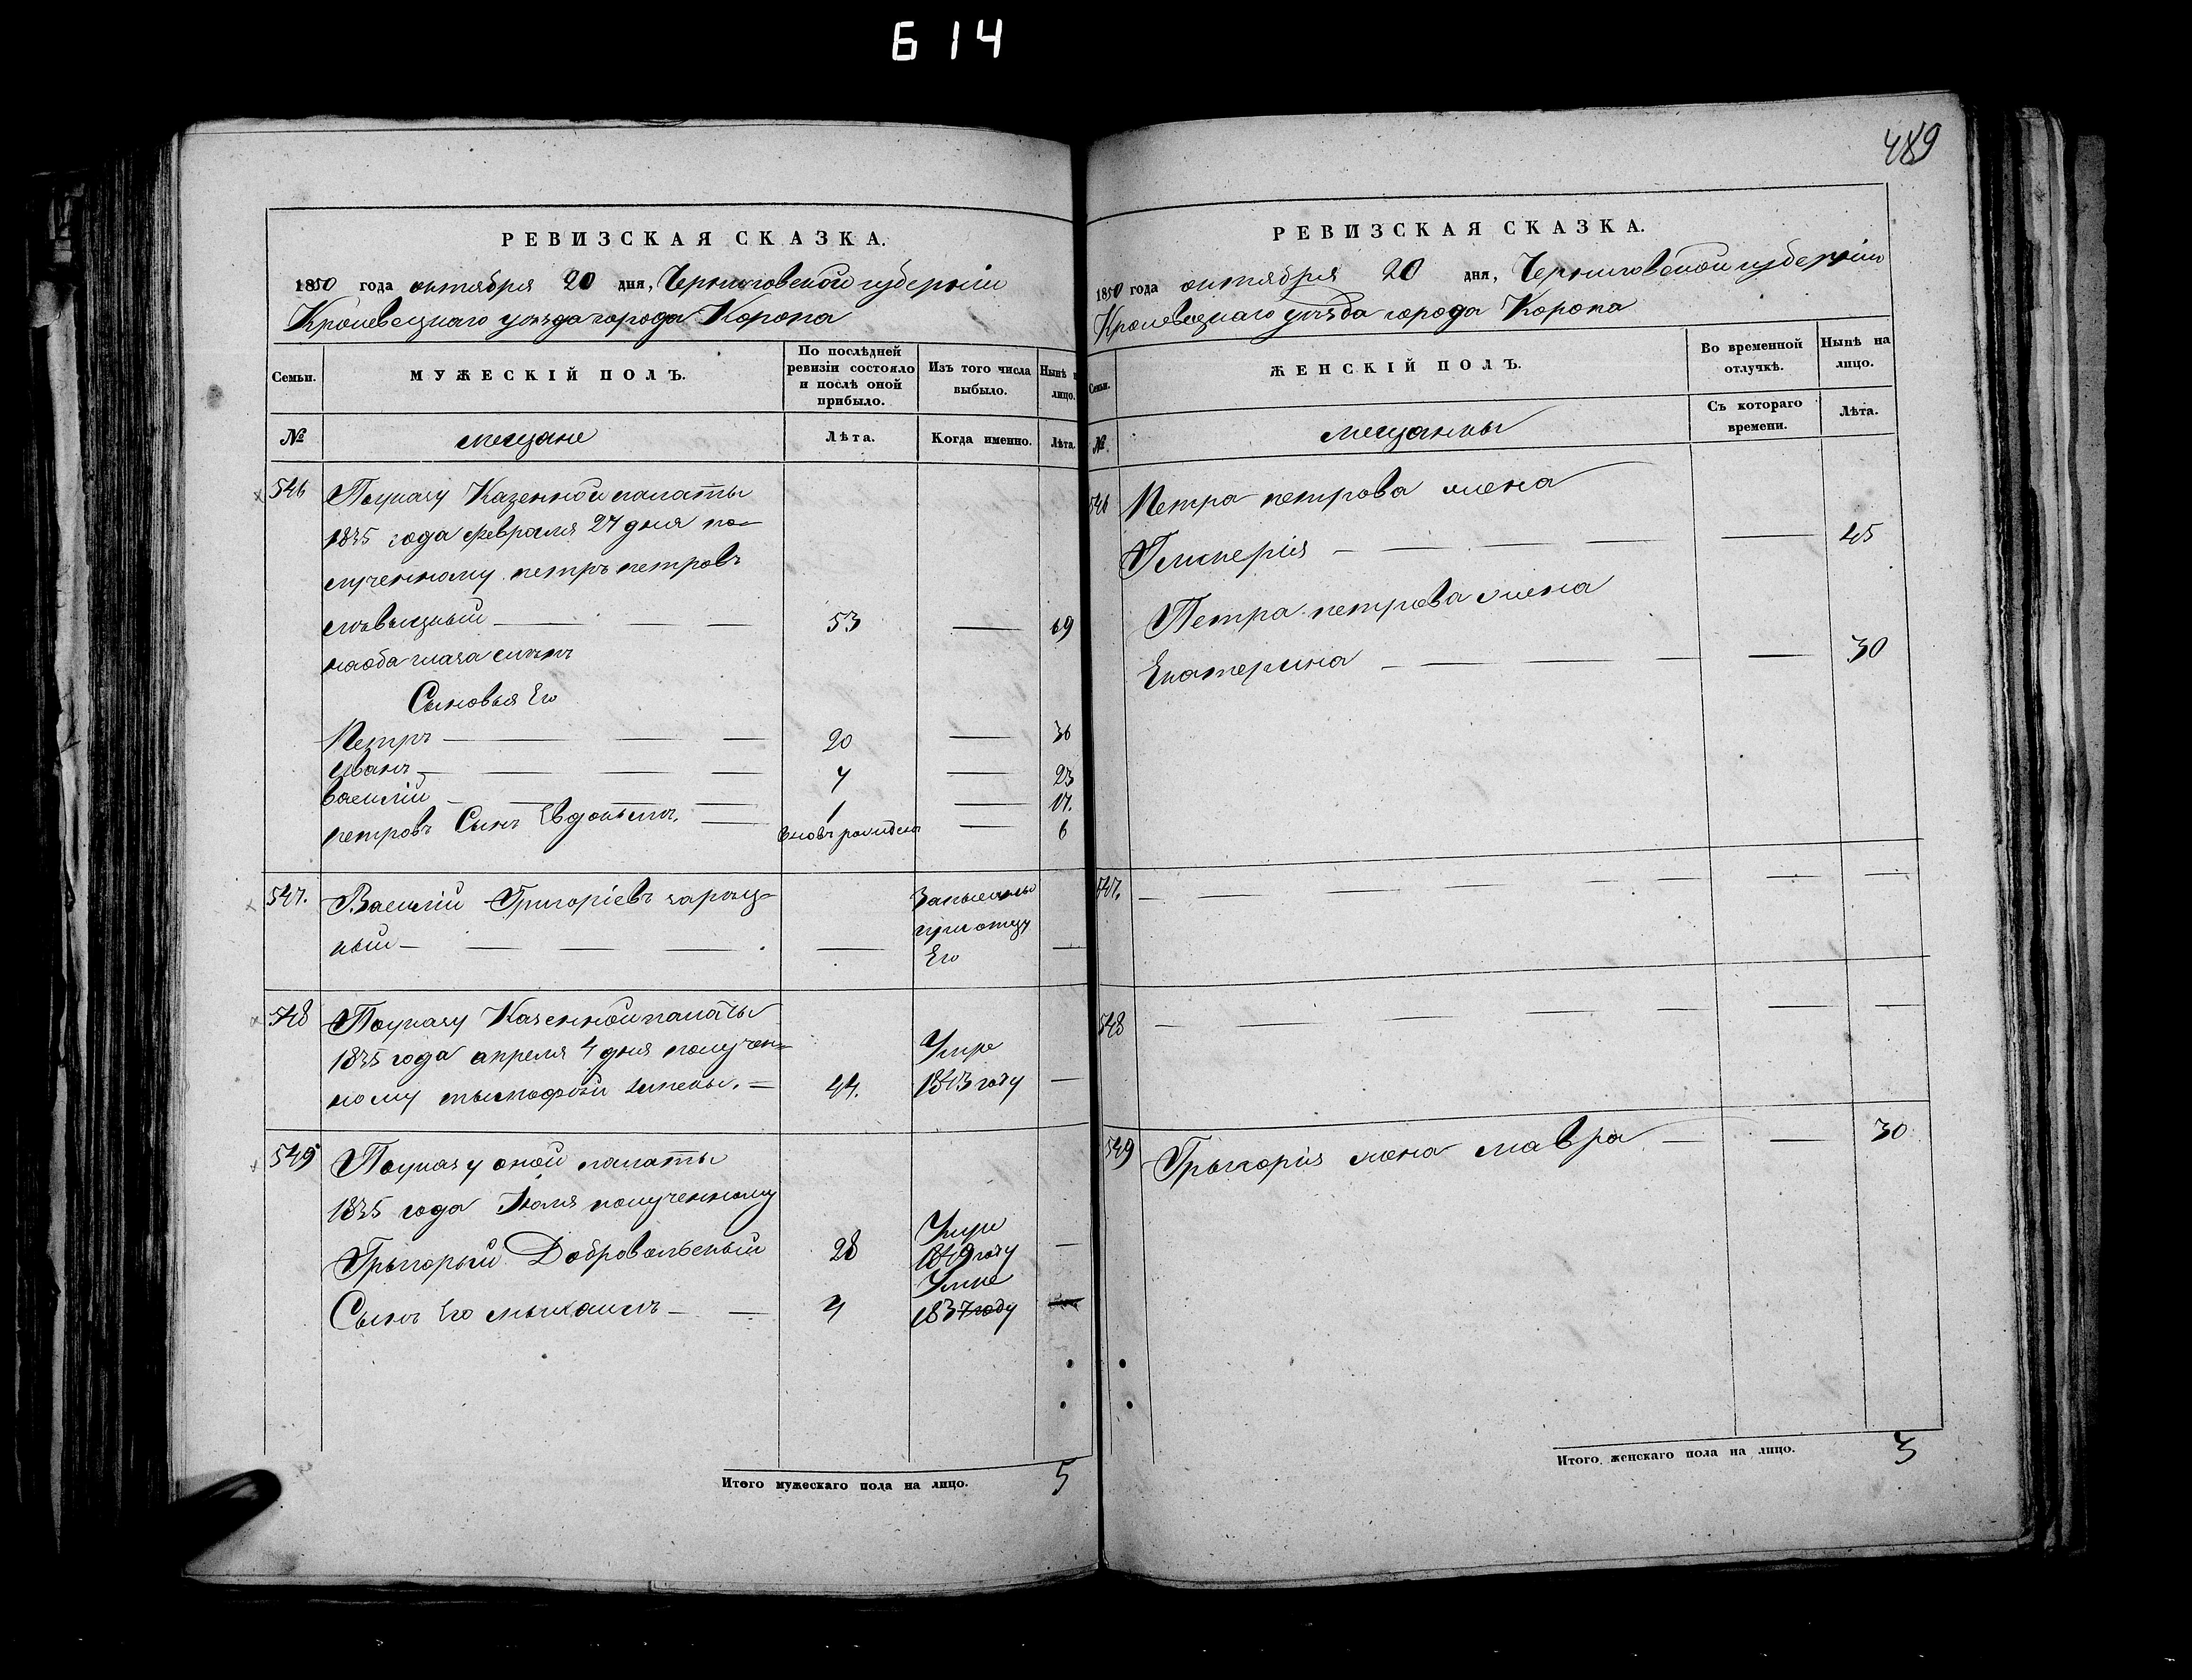 614
489
РЕВИЗСКАЯ СКАЗКА.
1850 года октября 20 дня, Черниговской губерніи
Кролевецкаго уѣзда города Коропа
Семьи.
МУЖЕСКІЙ ПОЛЪ.
По послѣдней ревизіи состояло и послѣ оной прибыло.
Изъ того числа выбыло.
Нынѣ н лицо.
№
мещане
Лѣта.
Когда именно.
Лѣта.
546 Поуказу Казенной палаты
1835 года февраля 27 дня по-
лученному петръ петровъ
53 — 69
Сыновья Его
Петръ — 20 — 36
Иванъ — 7 — 23
василій — 1 — 17.
петровъ Сынъ Евдокымъ. — вновъ рожденъ — 6
547. Василій Григоріевъ
ный — — при отцу
Его —
548 Поуказу Казенной палаты
1835 года апреля 4 дня получен= Умре
ному тымофѣй 44. 1843 году —
549 Поуказу оной палаты
1835 года Іюля полученному
Грыгорый Добровольскый 28 Умре 1849 году —
Сынъ Его мыхаилъ — 4 Умре 1837 году —
Итого мужескаго пола на лицо. 5
РЕВИЗСКАЯ СКАЗКА.
1850 года октября 20 дня, Черниговской губерніи
Кролевецкаго уѣзда города Коропа
Семьи.
ЖЕНСКІЙ ПОЛЪ.
Во временной отлучкѣ.
Нынѣ на лицо.
№
мещанкы
Съ котораго времени.
Лѣта.
546 Петра петрова жена
Гликерія — — 45
Петра петрова жена
Екатерина — — 30
547. — — —
548 — — —
549 Грыгорія жена мавра — — 30
Итого женскаго пола на лицо. 3